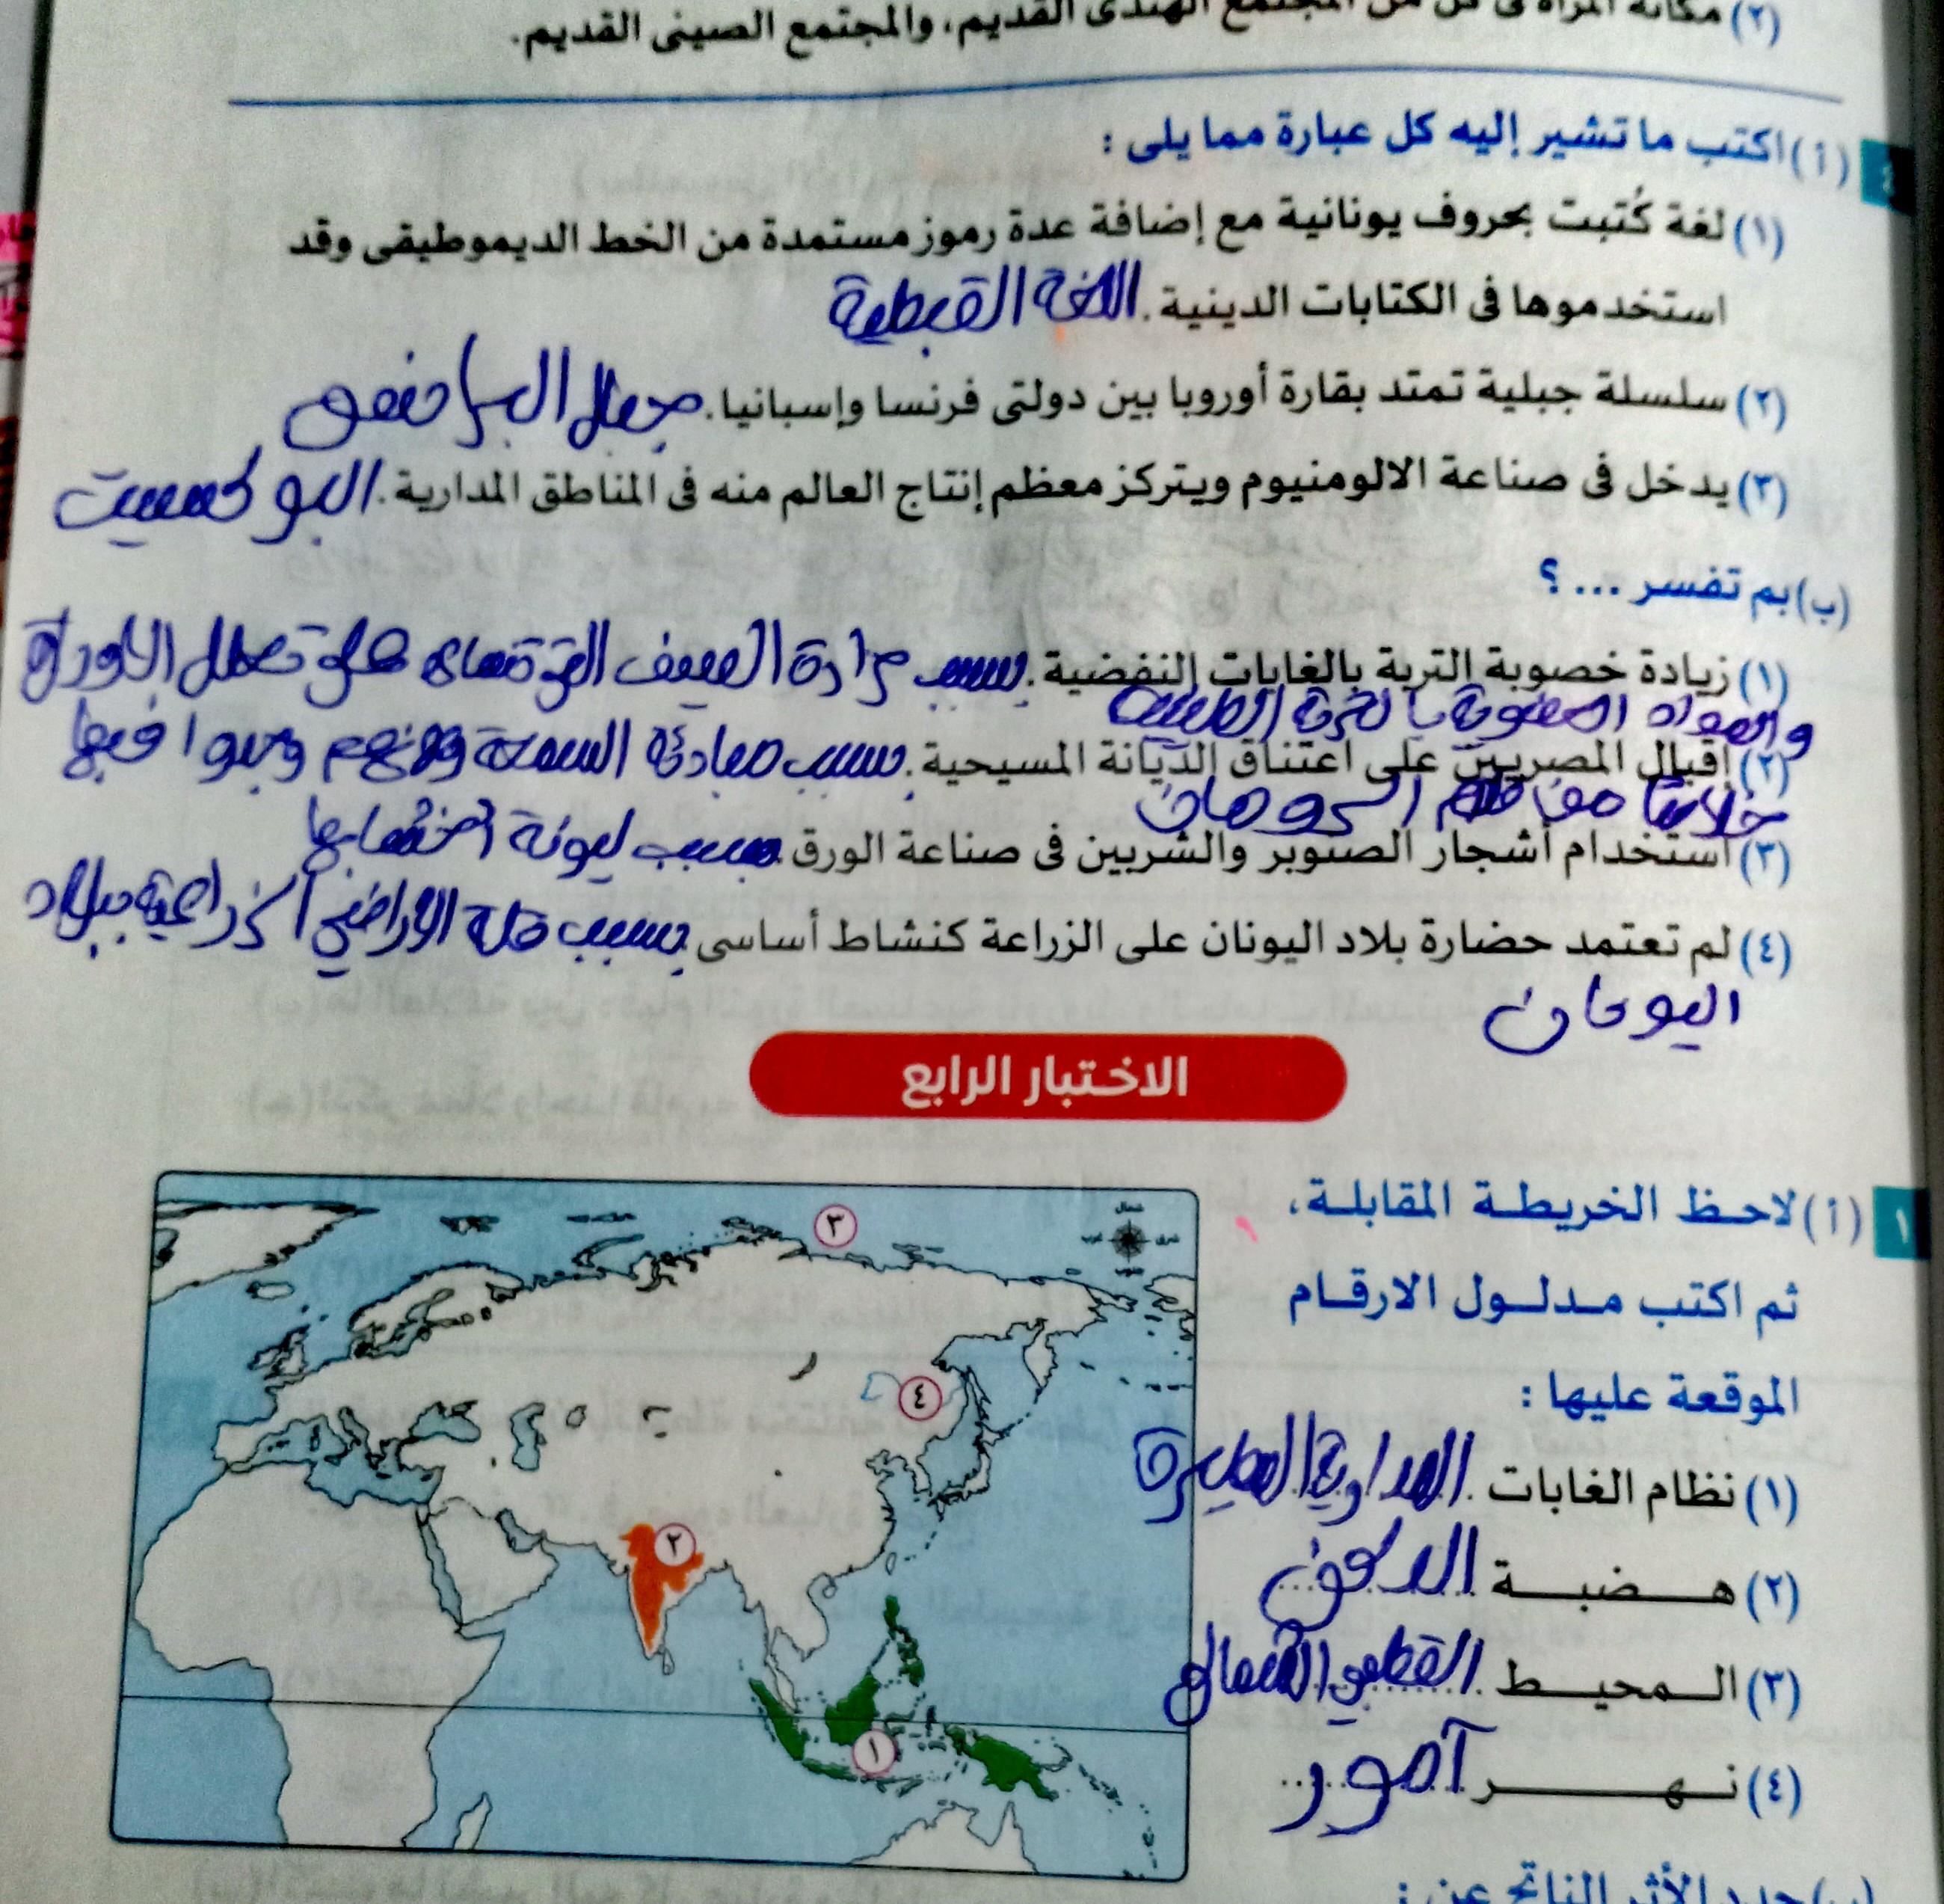 (٢) مكانة المرأة فى كل من المجتمع الهندى القديم، والمجتمع الصينى القديم.
٤ (أ) اكتب ما تشير إليه كل عبارة مما يلى :
(١) لغة كُتبت بحروف يونانية مع إضافة عدة رموز مستمدة من الخط الديموطيقى وقد
استخدموها فى الكتابات الدينية. اللغة القبطية
(٢) سلسلة جبلية تمتد بقارة أوروبا بين دولتى فرنسا وإسبانيا. جبال البرانس
(٣) يدخل فى صناعة الالومنيوم ويتركز معظم إنتاج العالم منه فى المناطق المدارية. البوكسيت
(ب) بم تفسر ... ؟
(١) زيادة خصوبة التربة بالغابات النفضية. بسبب حرارة الصيف التى تساعد على تحلل الأوراق
والمواد العضوية بالتربة الطينية
(٢) إقبال المصريين على اعتناق الديانة المسيحية. بسبب مبادئه السمحة ولانهم وجدوا فيها
خلاصا من ظلم الرومان
(٣) استخدام أشجار الصنوبر والشربين فى صناعة الورق. بسبب ليونة اخشابها
(٤) لم تعتمد حضارة بلاد اليونان على الزراعة كنشاط أساسى بسبب قلة الاراضي الزراعية ببلاد
اليونان
الاختبار الرابع
١ (أ) لاحظ الخريطة المقابلة،
ثم اكتب مدلول الارقام
الموقعة عليها :
(١) نظام الغابات المدارية المطيرة
(٢) هضبة الدكن
(٣) المحيط القطبي الشمالي
(٤) نهر آمور
شمال
شرق
غرب
جنوب
٣
٤
٢
١
(ب) حدد الأثر الناتج عن :